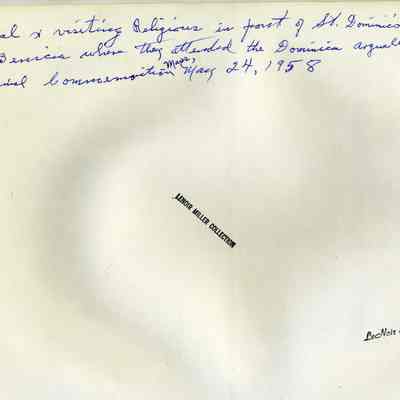 al & visiting Religious in front of St. Dominic's
Benicia where they attended the Dominica Arguello
ial Commemoration Mass, May 24, 1958
LENOIR MILLER COLLECTION
LeNoir